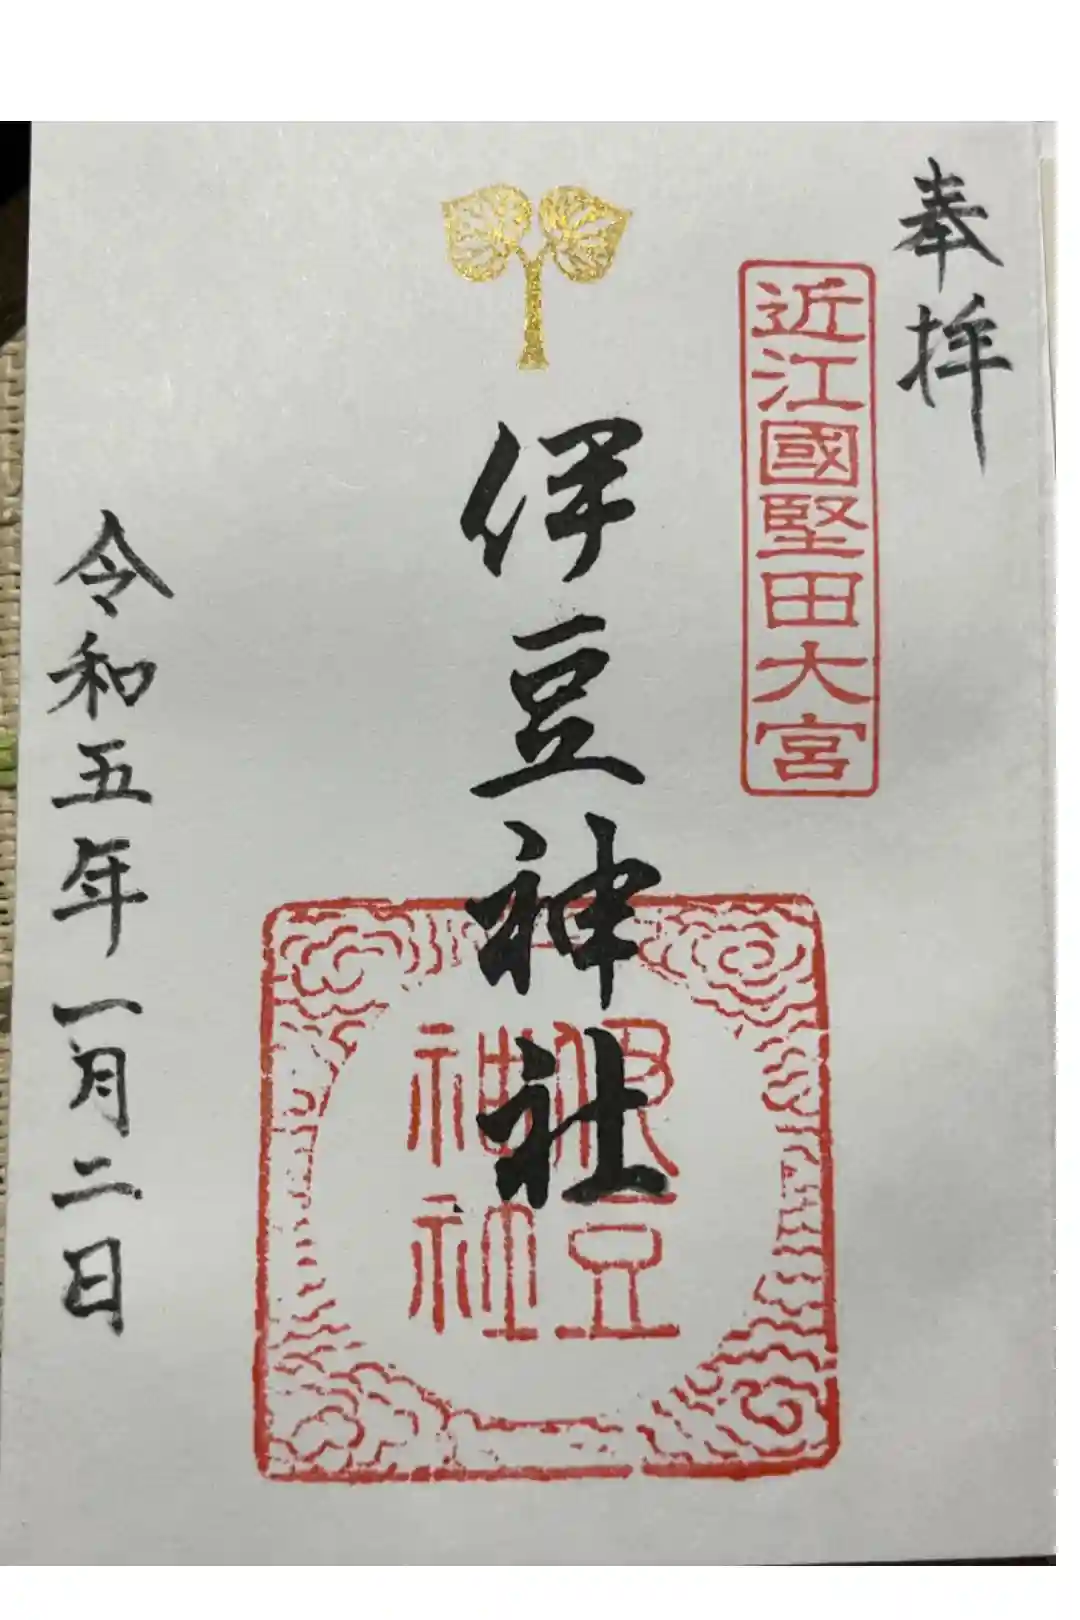 奉拝
近江國堅田大宮
伊豆神社
伊豆
神社
令和五年一月二日